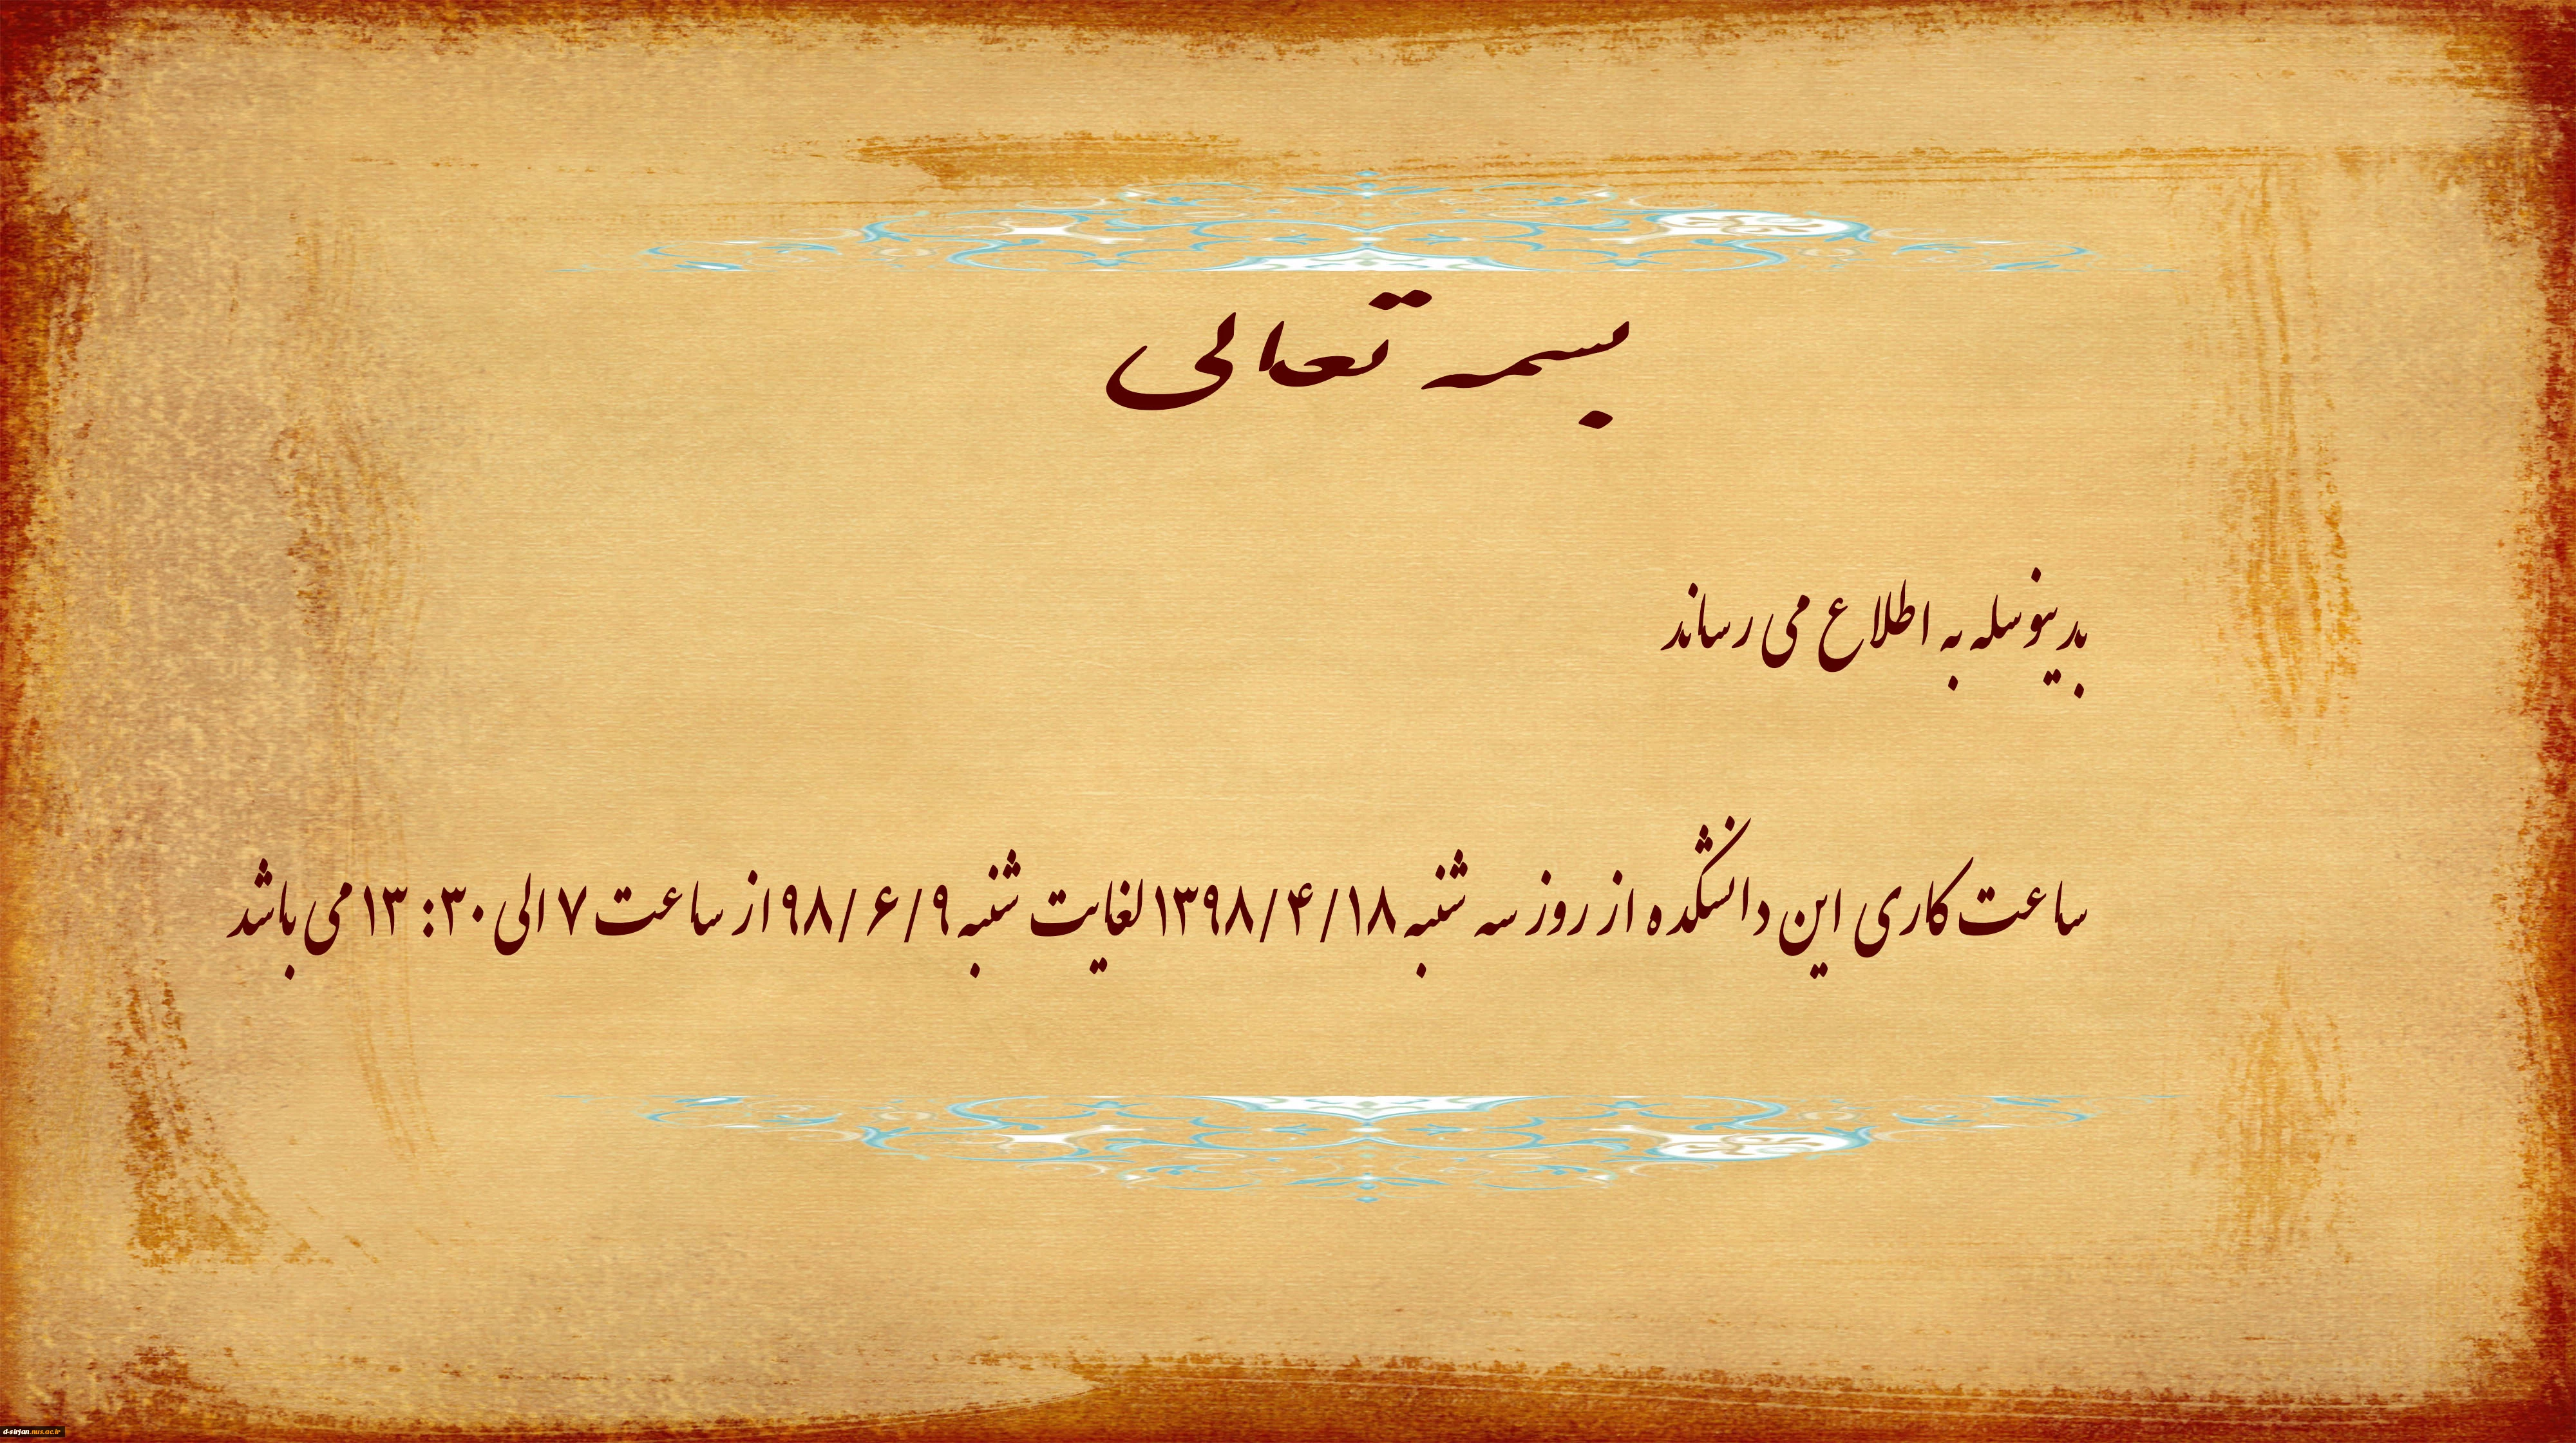 بسمه تعالی
بدینوسله به اطلاع می رساند
ساعت کاری این دانشکده از روز سه شنبه ۱۳۹۸/۴/۱۸ لغایت شنبه ۹۸/۶/۹ از ساعت ۷ الی ۱۳:۳۰ می باشد
d-sirjan.nus.ac.ir